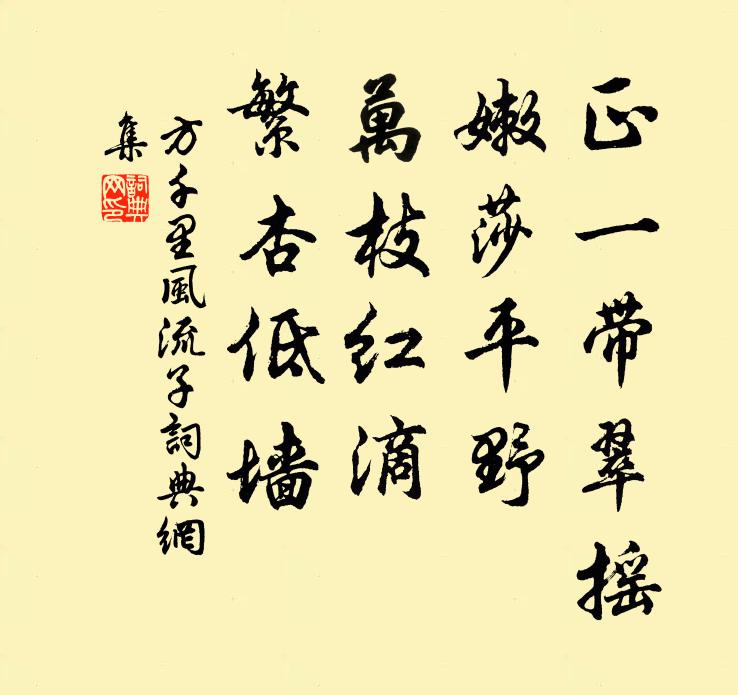 正一带翠摇
嫩莎平野
萬枝红滴
繁杏低墙
方千里風流子詞典網
集
詞典
网印